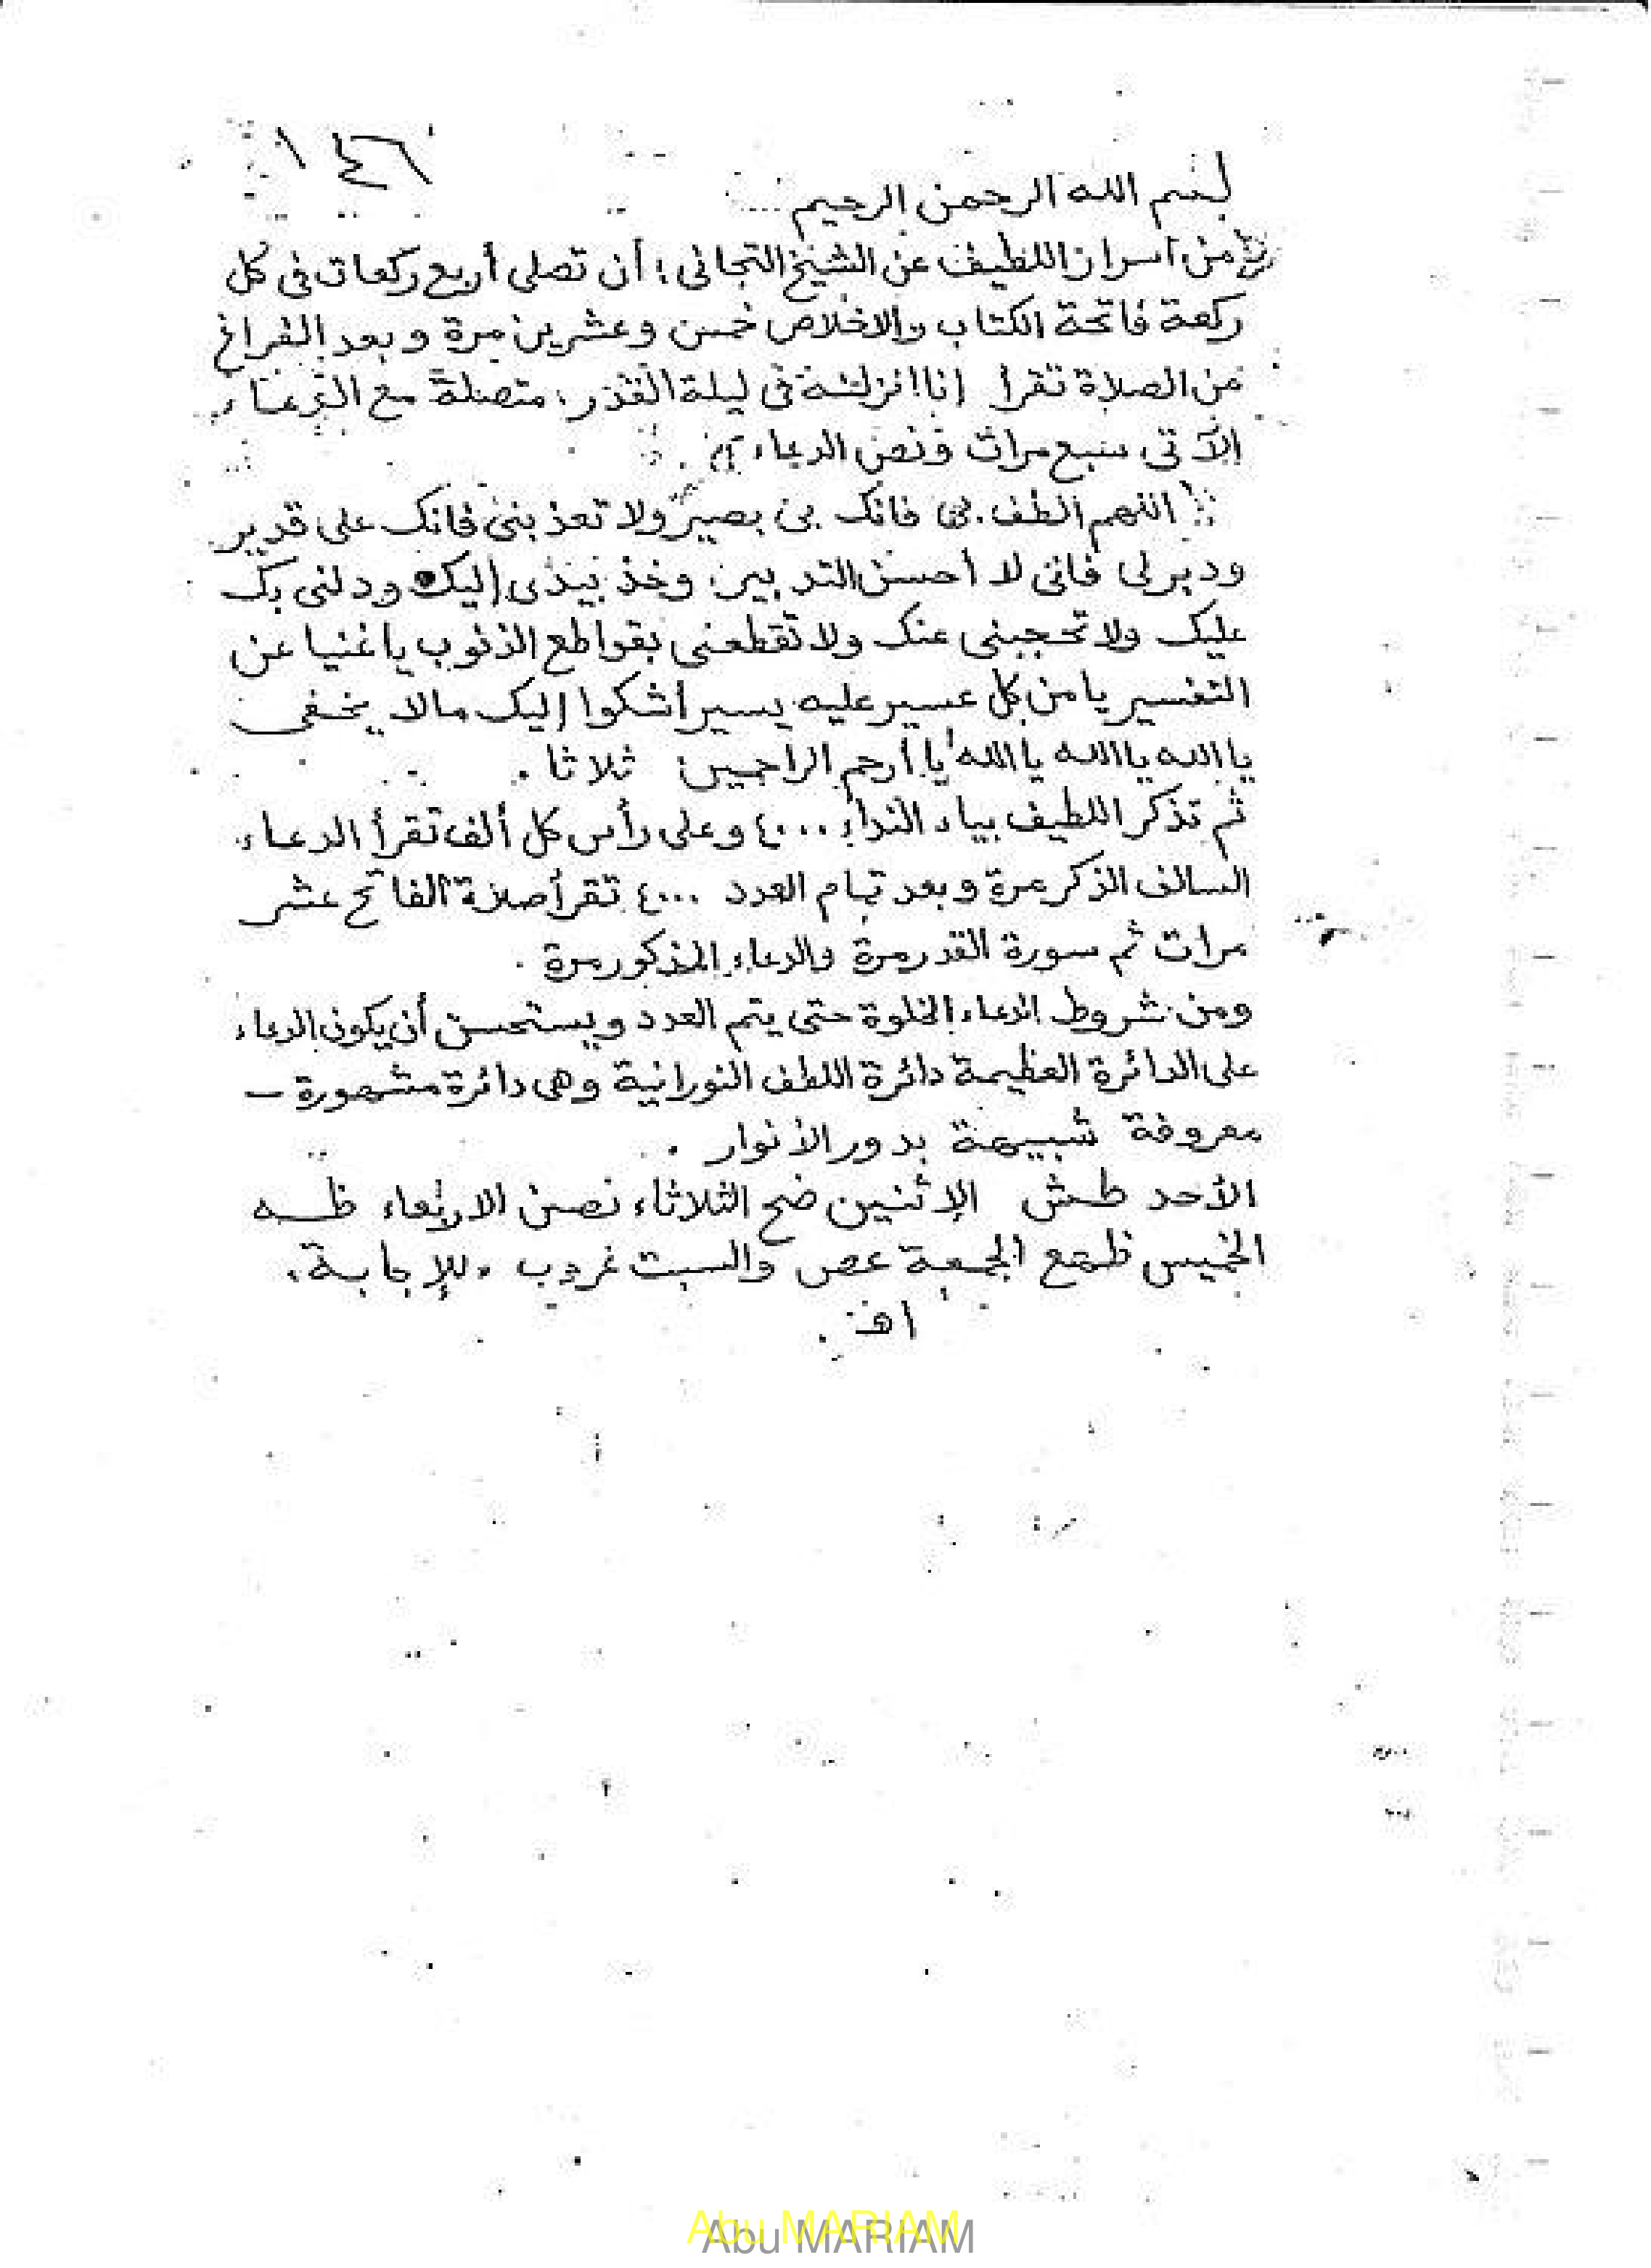 ١٤٦
بسم الله الرحمن الرحيم
من أسرار اللطيف عن الشيخ التجانى ؛ أن تصلى أربع ركعات فى كل
ركعة فاتحة الكتاب والاخلاص خمس وعشرين مرة و بعد الفراغ
من الصلاة تقرأ إنا انزلنه فى ليلة القدر متصلة مع الدعاء
الآتى سبع مرات ونص الدعاء
اللهم الطف بى فانك بى بصير ولا تعذبنى فانك على قدير
ودبرلى فانى لا أحسن التدبير وخذ بيدى إليك ودلنى بك
عليك ولا تحجبنى عنك ولا تقطعنى بقواطع الذنوب يا غنيا عن
التفسير يا من كل عسير عليه يسير أشكوا إليك مالا يخفى
يا الله يا الله يا الله يا أرحم الراحمين ثلاثا .
ثم تذكر اللطيف بياء النداء ٤٠٠٠ وعلى رأس كل ألف تقرأ الدعاء
السالف الذكر مرة و بعد تمام العدد ٤٠٠٠ تقرأ صلاة الفاتح عشر
مرات ثم سورة القدر مرة والدعاء المذكور مرة .
ومن شروط الدعاء الخلوة حتى يتم العدد ويستحسن أن يكون الدعاء
على الدائرة العظيمة دائرة اللطف النورانية وهى دائرة مشهورة –
معروفة شبيهة بدور الأنوار .
الأحد طش الإثنين ضح الثلاثاء نصن الاربعاء ظه
الخميس ظهع الجمعة عص والسبت غروب . للإجابة .
اهـ .
Abu MARIAM